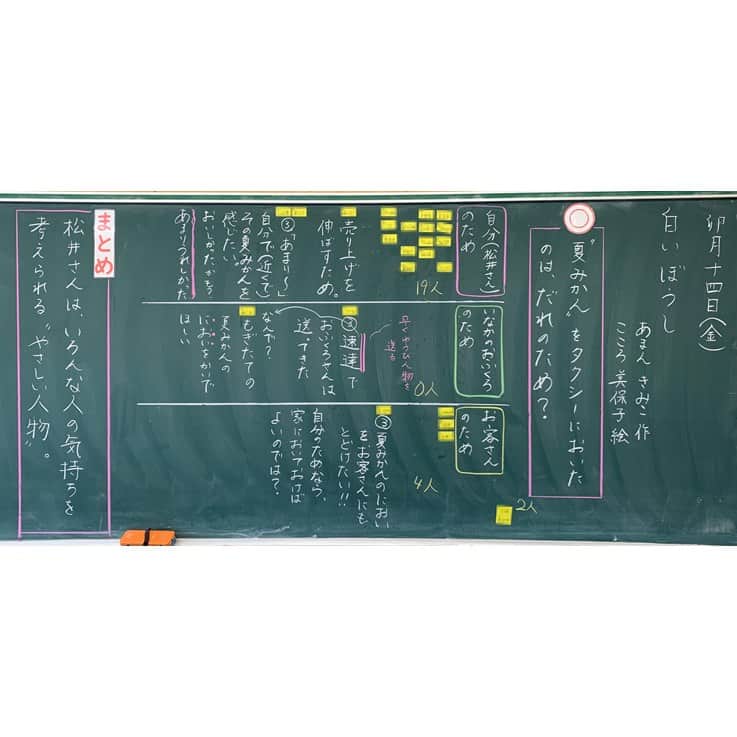 卯月十四日(金)
白いぼうし
あまん きみこ 作
こころ 美保子 絵
"夏みかん"をタクシーにおいた
のは、だれのため?
自分(松井さん)
のため
19人
売り上げを
伸ばすため。
③「あまり〜」
自分で(近くで)
その夏みかんを
感じたい。
あまりうれしかた
いなかのおふくろ
のため
0人
早くゆうびん物を
送る
③速達で
おふくろさんは
送てきた
なんで?
もぎたての
夏みかんの
においをかいで
ほしい
お客さん
のため
4人
2人
③夏みかんのにおい
を、お客さんにも
とどけたい!!
自分のためなら、
家においておけば
よいのでは?
まとめ
松井さんは、いろんな人の気持ちを
考えられる"やさしい人物"。